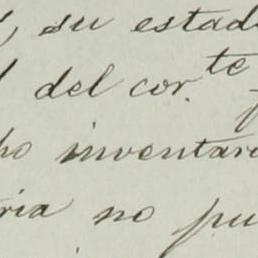 , su estad
del cor.te
ho inventar
ria no pu